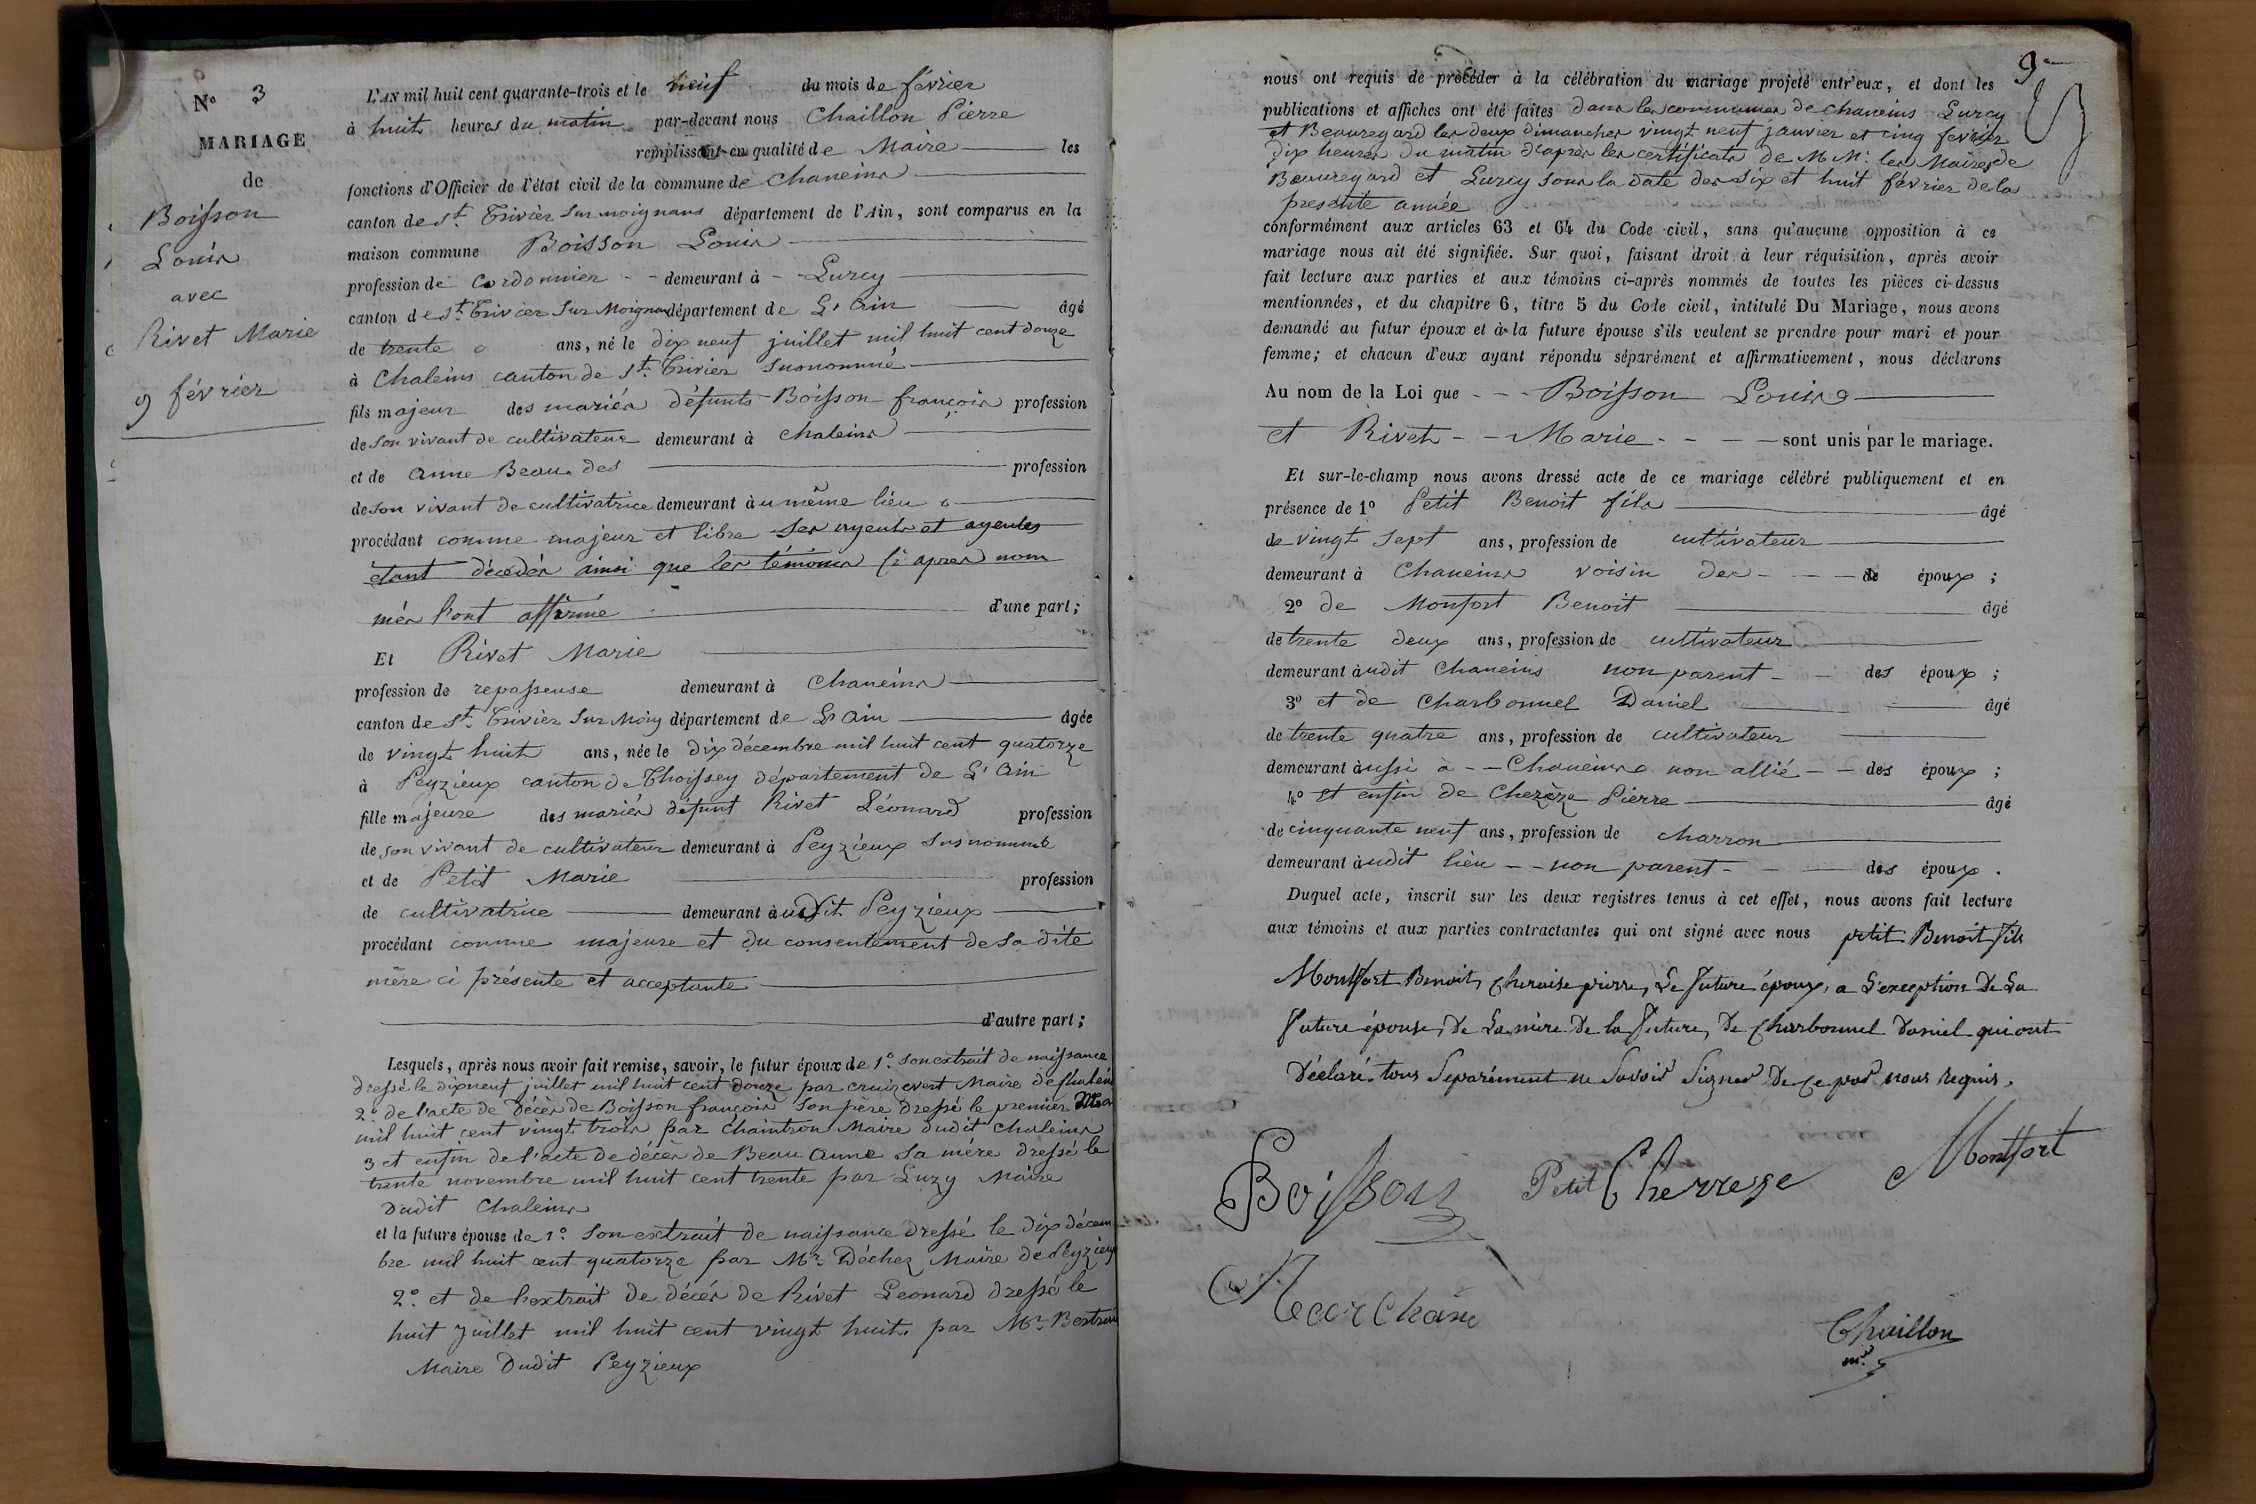 N° 3
MARIAGE
de
Boisson
Louis
avec
Rivet Marie
9 février
L'AN mil huit cent quarante-trois et le neuf du mois de février
à huit heures du matin par-devant nous Chaillon Pierre
remplissant en qualité de Maire les
fonctions d'Officier de l'état civil de la commune de Chaneins
canton de St. Trivier sur moignans département de l'Ain, sont comparus en la
maison commune Boisson Louis
profession de cordonnier demeurant à Lurcy
canton de St. Trivier sur Moignans département de L'Ain âgé
de trente ans, né le dix neuf juillet mil huit cent douze
à Chaleins canton de St. Trivier susnommé
fils majeur des mariés défunts Boisson françois profession
de son vivant de cultivateur demeurant à Chaleins
et de anne Beau des profession
de son vivant de cultivatrice demeurant au même lieu
procédant comme majeur et libre ses ayeuls et ayeules
étant décédés ainsi que les témoins ci après nom
més l'ont affirmé d'une part;
Et Rivet Marie
profession de repasseuse demeurant à Chaneins
canton de St. Trivier sur Moig département de L'Ain âgée
de vingt huit ans, née le dix décembre mil huit cent quatorze
à Peyzieux canton de Thoissey département de L'Ain
fille majeure des mariés défunt Rivet Léonard profession
de son vivant de cultivateur demeurant à Peyzieux susnommé
et de Petit Marie profession
de cultivatrice demeurant audit Peyzieux
procédant comme majeure et du consentement de sa dite
mère ci présente et acceptante
d'autre part;
Lesquels, après nous avoir fait remise, savoir, le futur époux de 1° son extrait de naissance
dressé le dix neuf juillet mil huit cent douze par Maire de
2° de l'acte de décès de Boisson françois son père dressé le premier
mil huit cent vingt trois par Chaintron Maire dudit Chaleins
3 et enfin de l'acte de décès de Beau anne sa mère dressé le
trente novembre mil huit cent trente par Luzy Maire
dudit Chaleins
et la future épouse de 1° son extrait de naissance dressé le dix décem
bre mil huit cent quatorze par Mr. Déchez Maire de Peyzieux
2° et de l'extrait de décès de Rivet Leonard dressé le
huit juillet mil huit cent vingt huit par Mr.
Maire dudit Peyzieux
9
nous ont requis de procéder à la célébration du mariage projeté entr'eux, et dont les
publications et affiches ont été faites dans les communes de chaneins Lurcy
et Beauregard les deux dimanches vingt neuf janvier et cinq février
dix heures du matin d'après les certificats de MM. les Maires de
Beauregard et Lurcy sous la date des six et huit février de la
presente année
conformément aux articles 63 et 64 du Code civil, sans qu'aucune opposition à ce
mariage nous ait été signifiée. Sur quoi, faisant droit à leur réquisition, après avoir
fait lecture aux parties et aux témoins ci-après nommés de toutes les pièces ci-dessus
mentionnées, et du chapitre 6, titre 5 du Code civil, intitulé Du Mariage, nous avons
demandé au futur époux et à la future épouse s'ils veulent se prendre pour mari et pour
femme; et chacun d'eux ayant répondu séparément et affirmativement, nous déclarons
Au nom de la Loi que Boisson Louis
et Rivet Marie sont unis par le mariage.
Et sur-le-champ nous avons dressé acte de ce mariage célébré publiquement et en
présence de 1° Petit Benoit fils âgé
de vingt sept ans, profession de cultivateur
demeurant à Chaneins voisin des époux;
2° de Monfort Benoit âgé
de trente deux ans, profession de cultivateur
demeurant audit Chaneins non parent des époux;
3° et de Charbonnel Daniel âgé
de trente quatre ans, profession de cultivateur
demeurant aussi à Chaneins non allié des époux;
4° et enfin de Chezèze Pierre âgé
de cinquante neuf ans, profession de charron
demeurant audit lieu non parent des époux.
Duquel acte, inscrit sur les deux registres tenus à cet effet, nous avons fait lecture
aux témoins et aux parties contractantes qui ont signé avec nous petit Benoit fils
Montfort Benoit, pierre, Le future époux, a L'exception De La
future épouse, De La mère De la future, De Charbonnel Daniel qui ont
Déclaré tous Separément ne Savoir Signer De ce par nous requis.
Boisson Petit Cherreze Montfort
Marchand
Chaillon